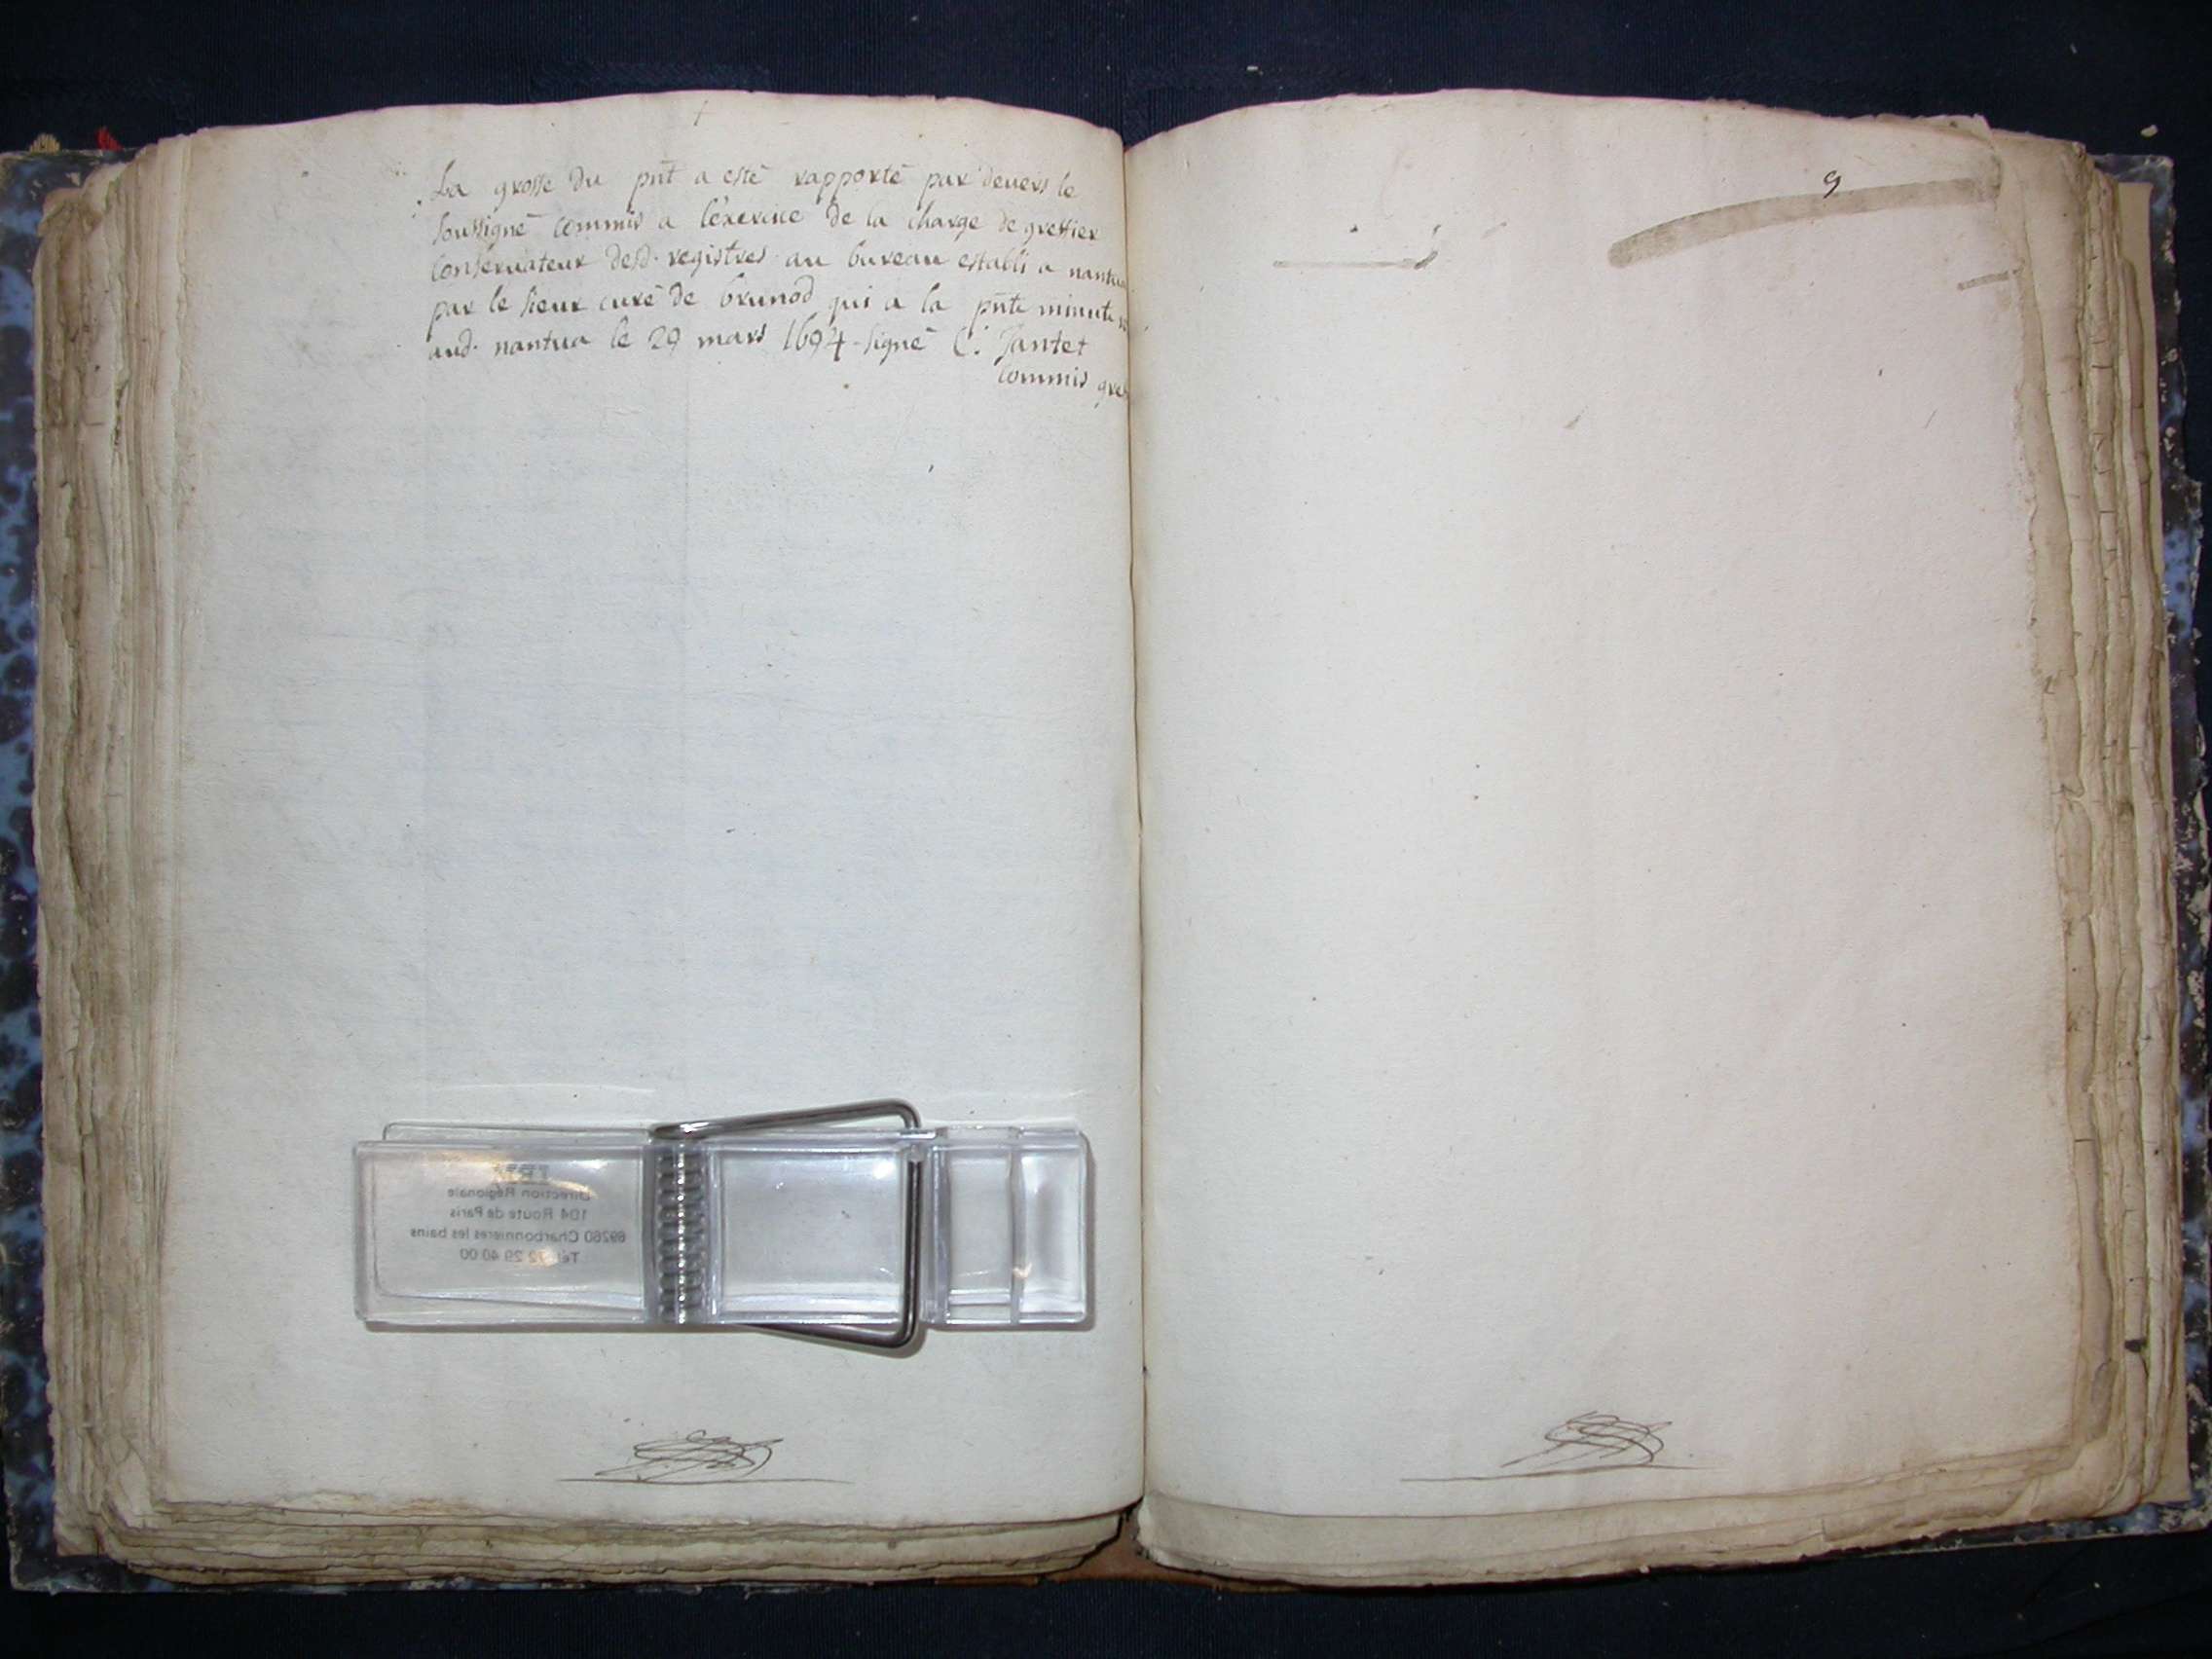 La grosse du pñt a esté rapporté par devers le
soussigné commis a l'exercice de la charge de greffier
conservateur desd. registres au bureau establi a nantua
par le sieur curé de brunod qui a la pñte minute
aud. nantua le 29 mars 1694 - signé C. Jantet
commis gref
9
Direction Régionale
104 Route de Paris
69260 Charbonnières les bains
Tél. 72 29 40 00